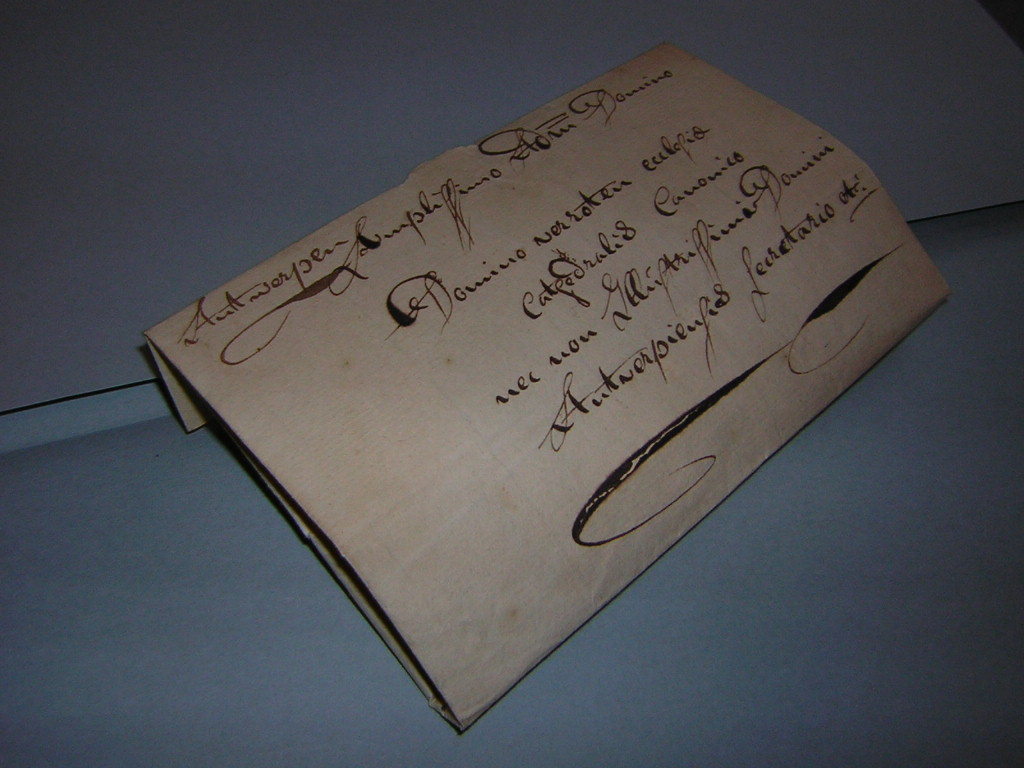 Amplissimo Adm Domino
Domino verroten ecclesiæ
Cathedralis Canonico
nec non Illustrissimi Domini
Antwerpiensis Secretario etc.
Antwerpen